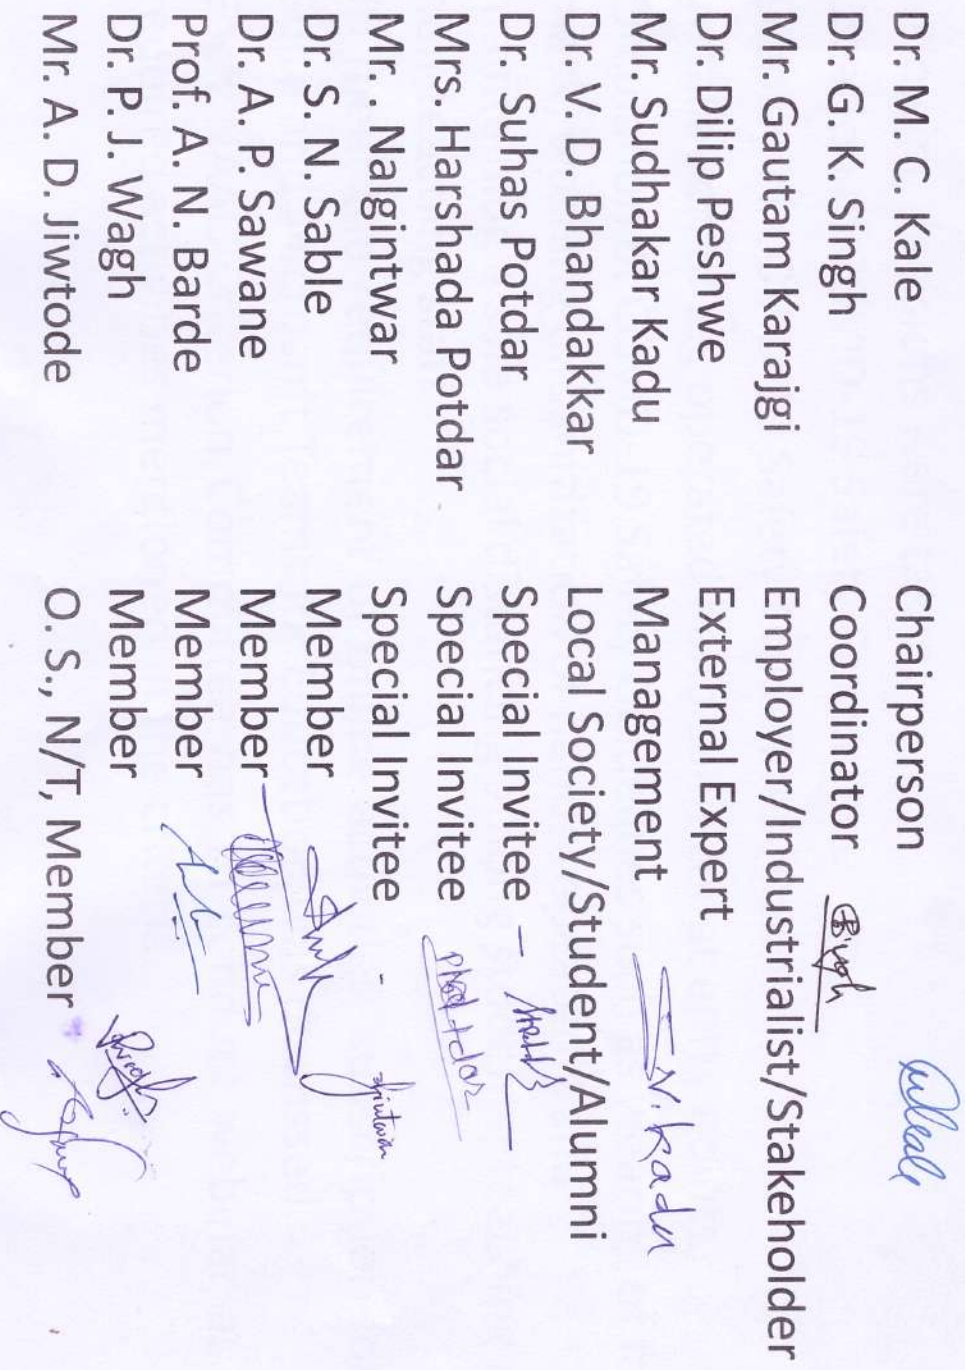 Dr. M. C. Kale Chairperson
Dr. G. K. Singh Coordinator Singh
Mr. Gautam Karajgi Employer/Industrialist/Stakeholder
Dr. Dilip Peshwe External Expert
Mr. Sudhakar Kadu Management S.V. Kadu
Dr. V. D. Bhandakkar Local Society/Student/Alumni
Dr. Suhas Potdar Special Invitee –
Mrs. Harshada Potdar Special Invitee
Mr. . Nalgintwar Special Invitee -
Dr. S. N. Sable Member
Dr. A. P. Sawane Member
Prof. A. N. Barde Member
Dr. P. J. Wagh Member
Mr. A. D. Jiwtode O. S., N/T, Member